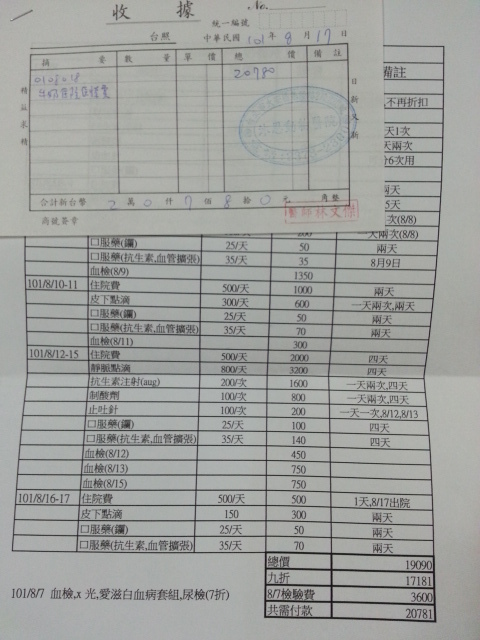 收據
No.
統一編號
台照 中華民國 101年 8月 17日
摘要 數量 單價 總價 備註
20780
精益求精
日新又新
合計新台幣 2萬0仟7佰8拾0元 角整
商號簽章
備註
不再折扣
天1次
天兩次
兩天
5天
200 一天兩次(8/8)
口服藥(鑭) 25/天 50 兩天
口服藥(抗生素,血管擴張) 35/天 35 8月9日
血檢(8/9) 1350
101/8/10-11 住院費 500/天 1000 兩天
皮下點滴 300/天 600 一天兩次,兩天
口服藥(鑭) 25/天 50 兩天
口服藥(抗生素,血管擴張) 35/天 70 兩天
血檢(8/11) 300
101/8/12-15 住院費 500/天 2000 四天
靜脈點滴 800/天 3200 四天
抗生素注射(aug) 200/次 1600 一天兩次,四天
制酸劑 100/次 800 一天兩次,四天
止吐針 100/次 200 一天一次,8/12,8/13
口服藥(鑭) 25/天 100 四天
口服藥(抗生素,血管擴張) 35/天 140 四天
血檢(8/12) 450
血檢(8/13) 750
血檢(8/15) 750
101/8/16-17 住院費 500/天 500 1天,8/17出院
皮下點滴 150 300 兩天
口服藥(鑭) 25/天 50 兩天
口服藥(抗生素,血管擴張) 35/天 70 兩天
總價 19090
九折 17181
8/7檢驗費 3600
共需付款 20781
101/8/7 血檢,x光,愛滋白血病套組,尿檢(7折)